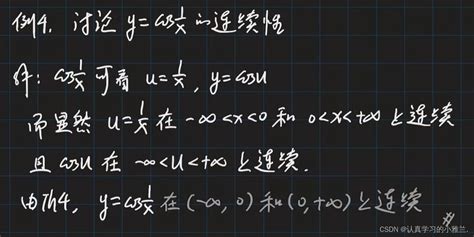 例4. 讨论 y=cos1/x 的连续性
解: cos1/x 可看 u=1/x, y=cosu
而显然 u=1/x 在 -∞<x<0 和 0<x<+∞ 上连续
且 cosu 在 -∞<u<+∞ 上连续.
由Th4, y=cos1/x 在 (-∞, 0) 和 (0, +∞) 上连续 #
CSDN @认真学习的小雅兰.